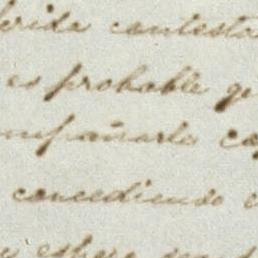 erida contesta
es probable q
ompañarlo co
concediendo
espero